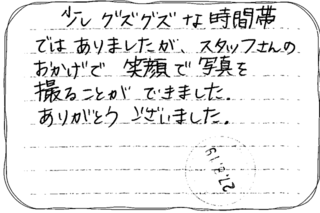 少しグズグズな時間帯
ではありましたが、スタッフさんの
おかげで笑顔で写真を
撮ることができました。
ありがとうございました。
27.8.19